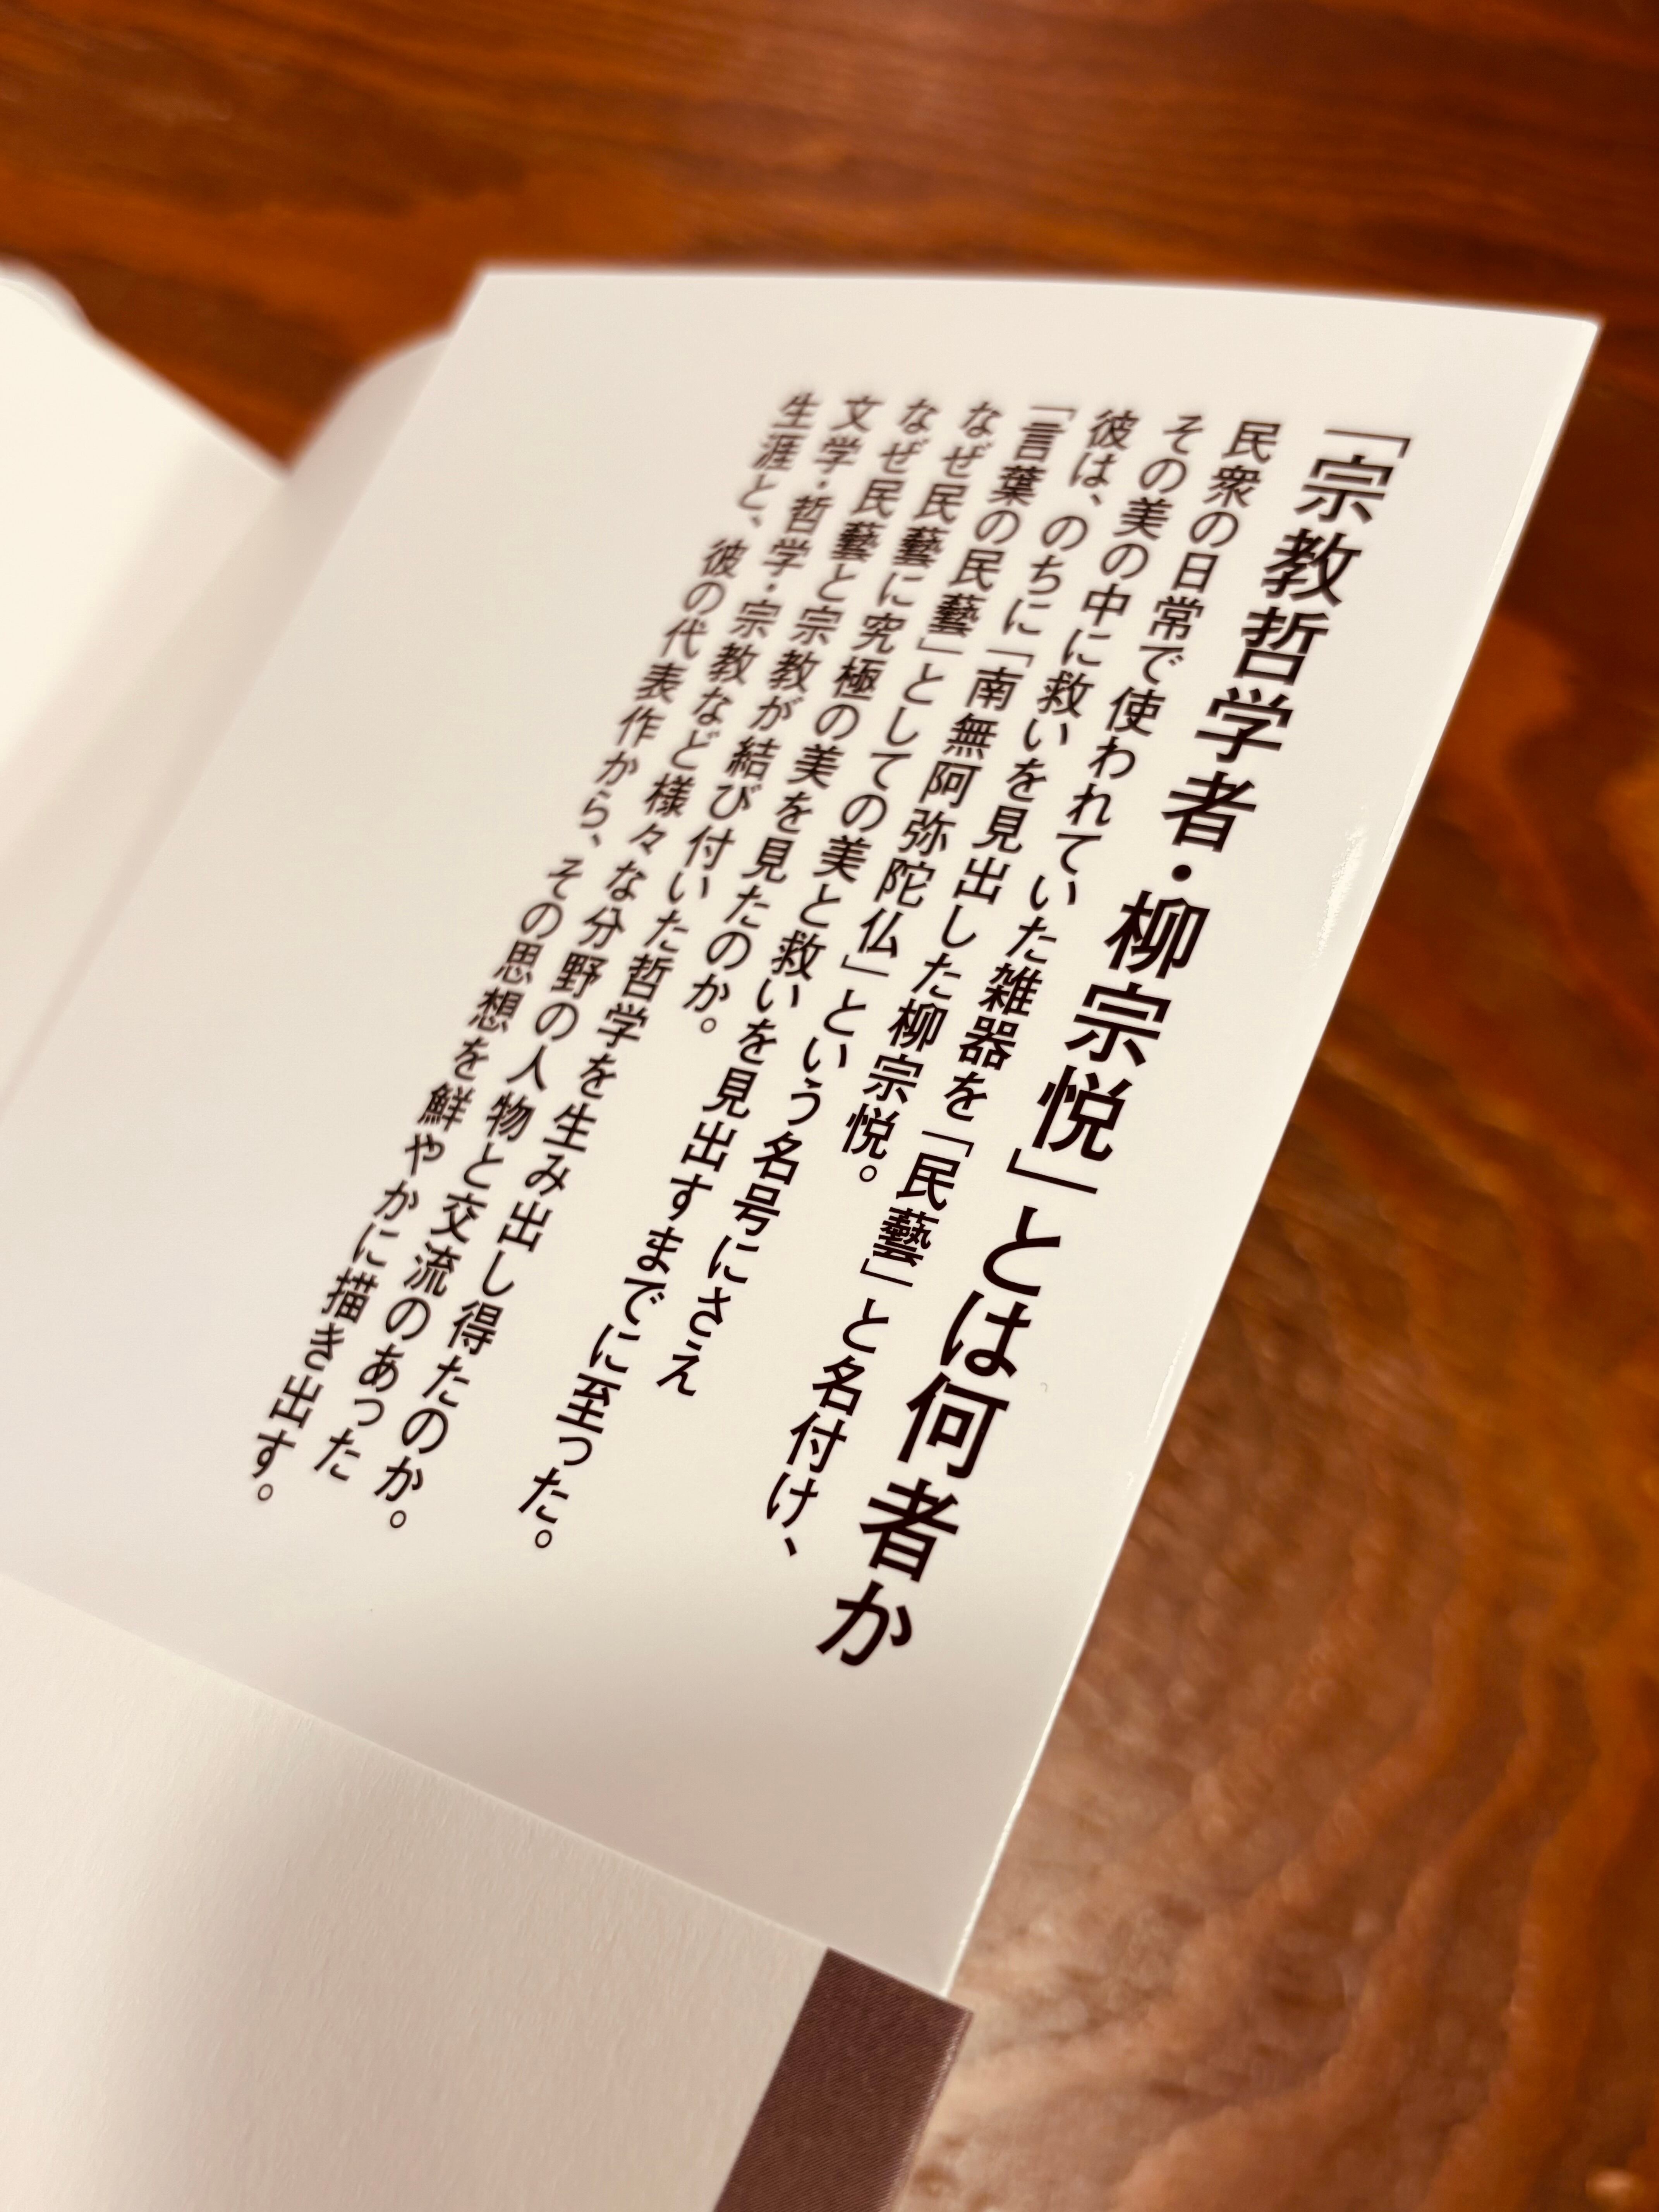 「宗教哲学者・柳宗悦」とは何者か
民衆の日常で使われていた雑器を「民藝」と名付け、
その美の中に救いを見出した柳宗悦。
彼は、のちに「南無阿弥陀仏」という名号にさえ
「言葉の民藝」としての美と救いを見出すまでに至った。
なぜ民藝に究極の美を見たのか。
なぜ民藝と宗教が結び付いた哲学を生み出し得たのか。
文学・哲学・宗教など様々な分野の人物と交流のあった
生涯と、彼の代表作から、その思想を鮮やかに描き出す。